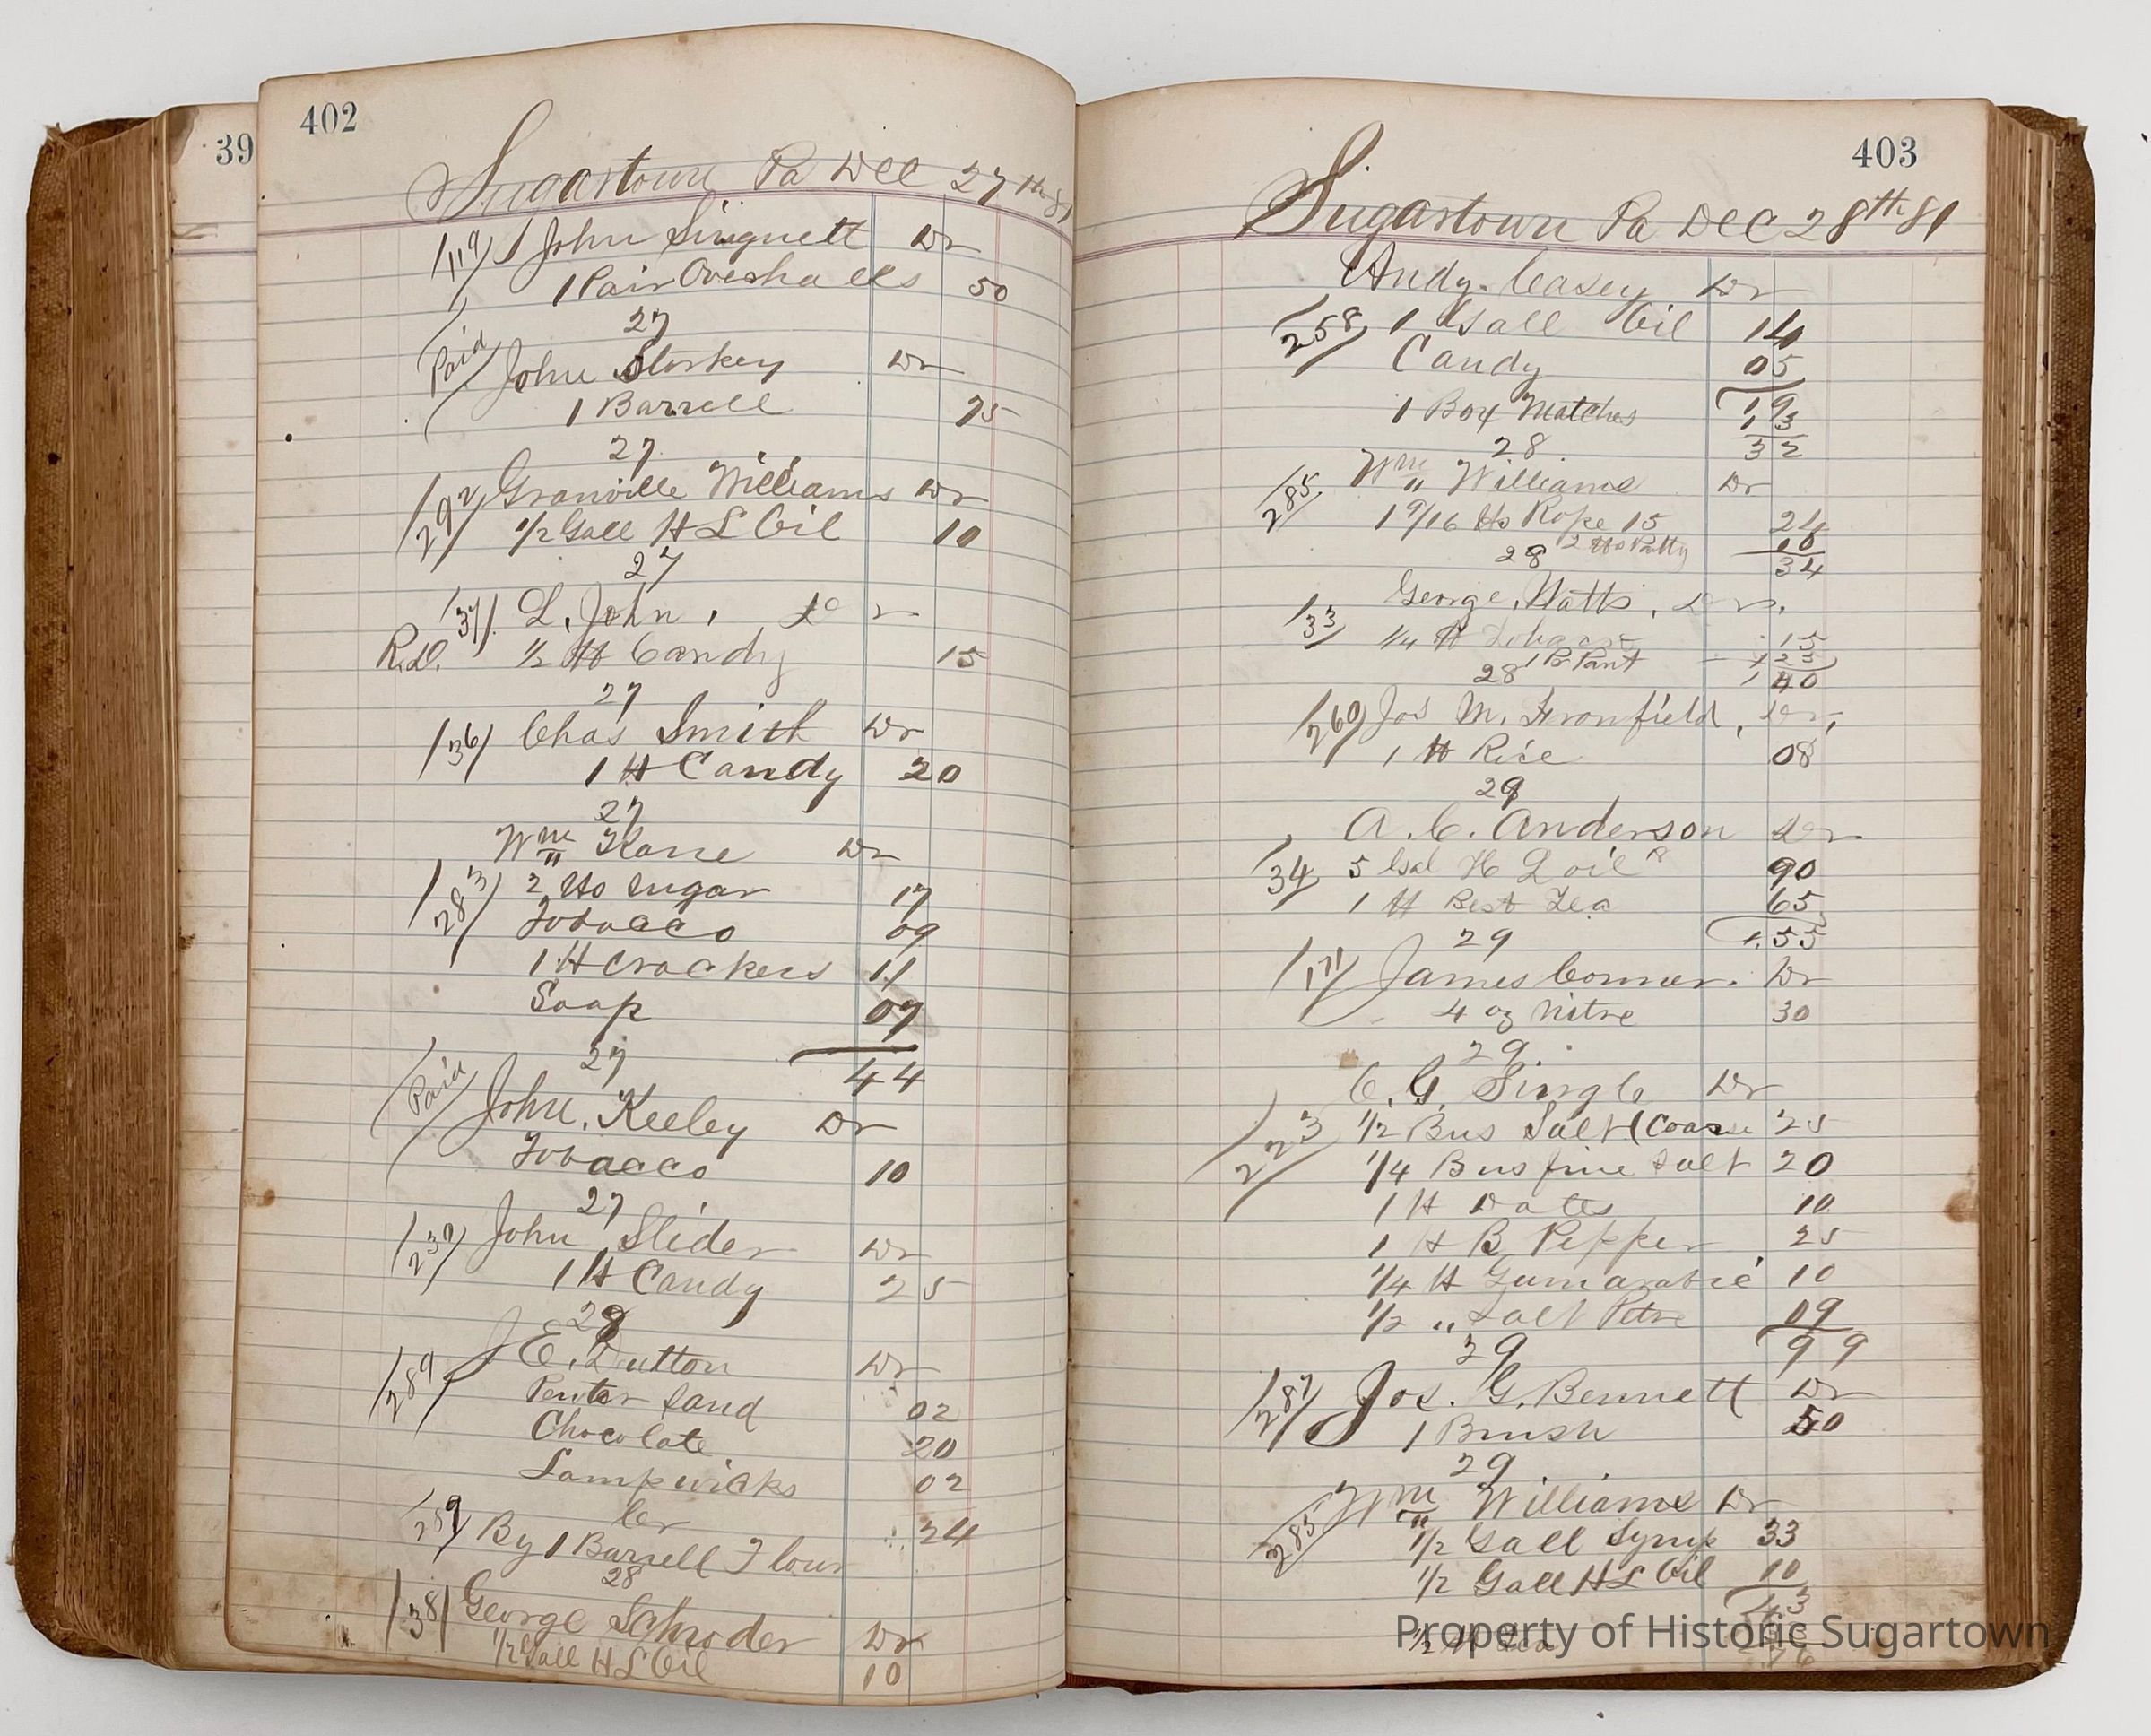 39
402
Sugartown Pa Dec 27th 81
119 John Singuett Dr
1 Pair Overhalls 50
27
Paid John Storkey Dr
1 Barrell 75
27
292 Granville Williams Dr
1/2 Gall H L Oil 10
27
37 L. John, Dr
R.D. 1/2 lb Candy 15
27
36 Chas Smith Dr
1 lb Candy 20
27
Wm Kane Dr
283 2 lbs Sugar 17
Tobacco 09
1 lb Crackers 11
Soap 07
27
44
Paid John Keeley Dr
Tobacco 10
27
239 John Slider Dr
1 lb Candy 25
28
289 J E. Dutton Dr
Penter Sand 02
Chocolate 20
Lampwicks 02
Cr 24
289 By 1 Barrell Flour
28
38 George Schroder Dr
1/2 Gall H L Oil 10
403
Sugartown Pa Dec 28th 81
Andy. Casey Dr
258 1 Gall Oil 14
Candy 05
19
1 Box Matches 13
28 32
Wm Williams Dr
285 1 9/16 lbs Rope 15 24
2 lbs Putty 10
28 34
George Watts, Dr.
33 1/4 lb Tobacco 15
1 Pr Pant 1 25
28 1 40
260 Jos M. Fronfield, Dr,
1 lb Rice 08
29
A. C. Anderson Dr
34 5 Gal H L oil 90
1 lb Best Tea 65
29 1.55
171 James Conner. Dr
4 oz Nitre 30
29.
C. G. Singl Dr
223 1/2 Bus Salt (Coarse 25
1/4 Bus fine Salt 20
1 lb Dates 10
1 lb B Pepper 25
1/4 lb Gumarabic 10
1/2 " Salt Petre 09
29 99
287 Jos. G. Bennett Dr
1 Brush 50
29
Wm Williams Dr
285 1/2 Gall Syrup 33
1/2 Gall H L Oil 10
43
1/2 lb Tea
Property of Historic Sugartown